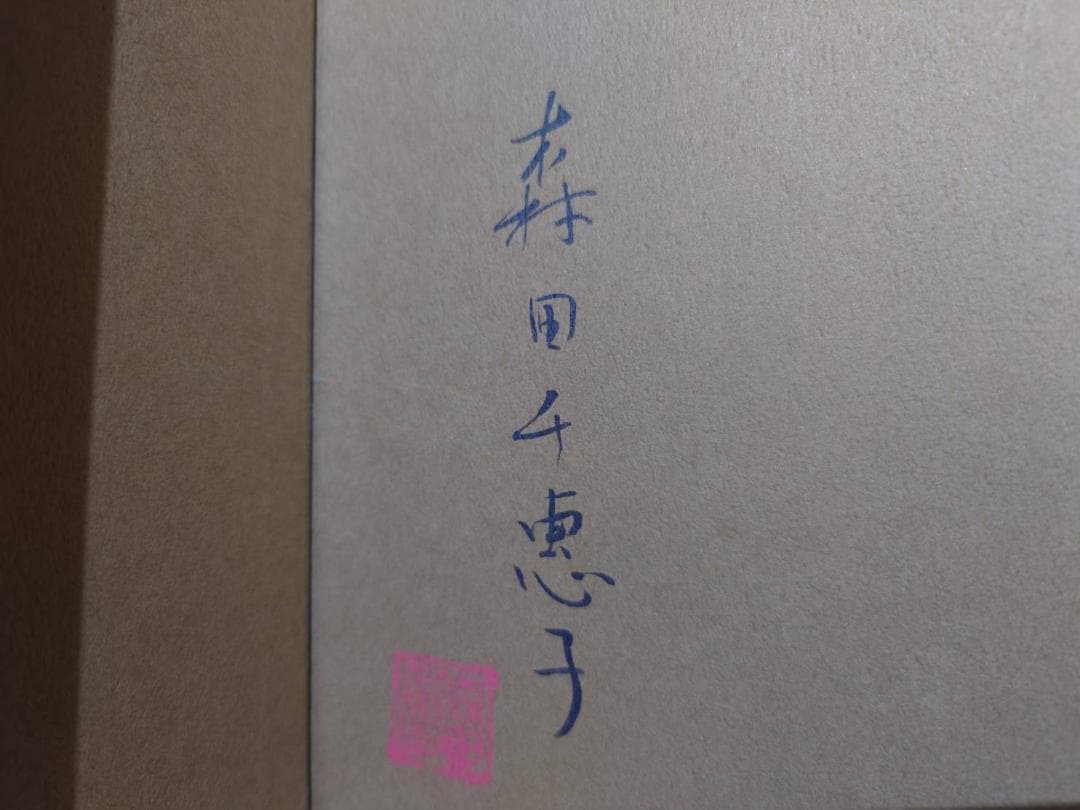 森田千恵子